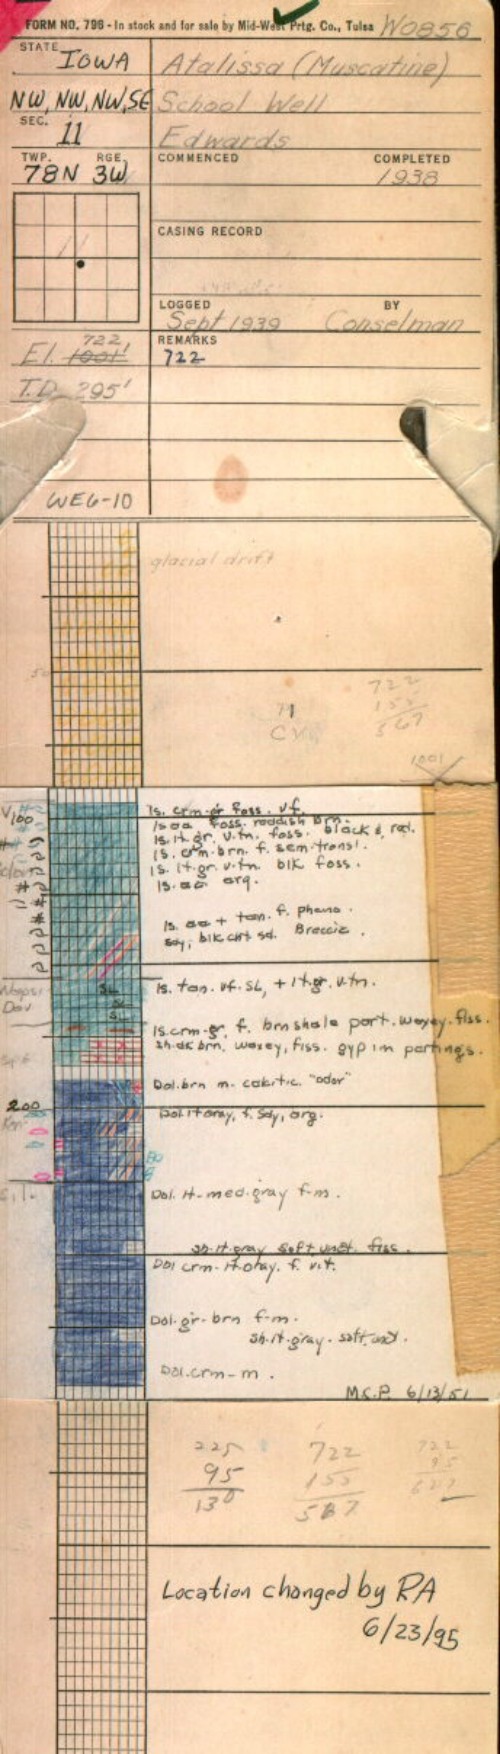 FORM NO. 796 - In stock and for sale by Mid-West Prtg. Co., Tulsa W0856
STATE IOWA Atalissa (Muscatine)
NW, NW, NW, SE School Well
SEC. 11 Edwards
TWP. RGE. COMMENCED COMPLETED
78N 3W 1938
11
CASING RECORD
LOGGED BY
Sept 1939 Conselman
722 REMARKS
El. 1001' 722
T.D. 295'
WEG-10
glacial drift
50
722
155
567
1001
100
ls. crm-gr foss. vf
ls aa foss. reddish brn.
ls. lt. gr. v.fn. foss. black & red.
ls. crm-brn. f. semi transl.
ls. lt. gr. v.fn. blk foss.
ls. aa arg.
ls. aa + tan. f. pheno.
sdy; blk cht sd. Breccia.
SL
ls. tan. vf. SL, + lt. gr. v.fn.
SL
SL
Dev
ls. crm-gr, f. brn shale part. waxey. fiss.
sh. dk brn, waxey, fiss. gyp in partings.
Dol. brn m. calcitic. "odor"
200
Dol. lt gray, f. sdy, arg.
Sil.
Dol. lt-med. gray f-m.
sh. lt. gray soft, unct. fiss.
Dol crm-lt. gray. f. vit.
Dol. gr-brn f-m.
sh. lt. gray. soft, unct.
Dol. crm-m.
M.C.P. 6/13/51
225 722 722
95 155 95
130 567 627
Location changed by RA
6/23/95